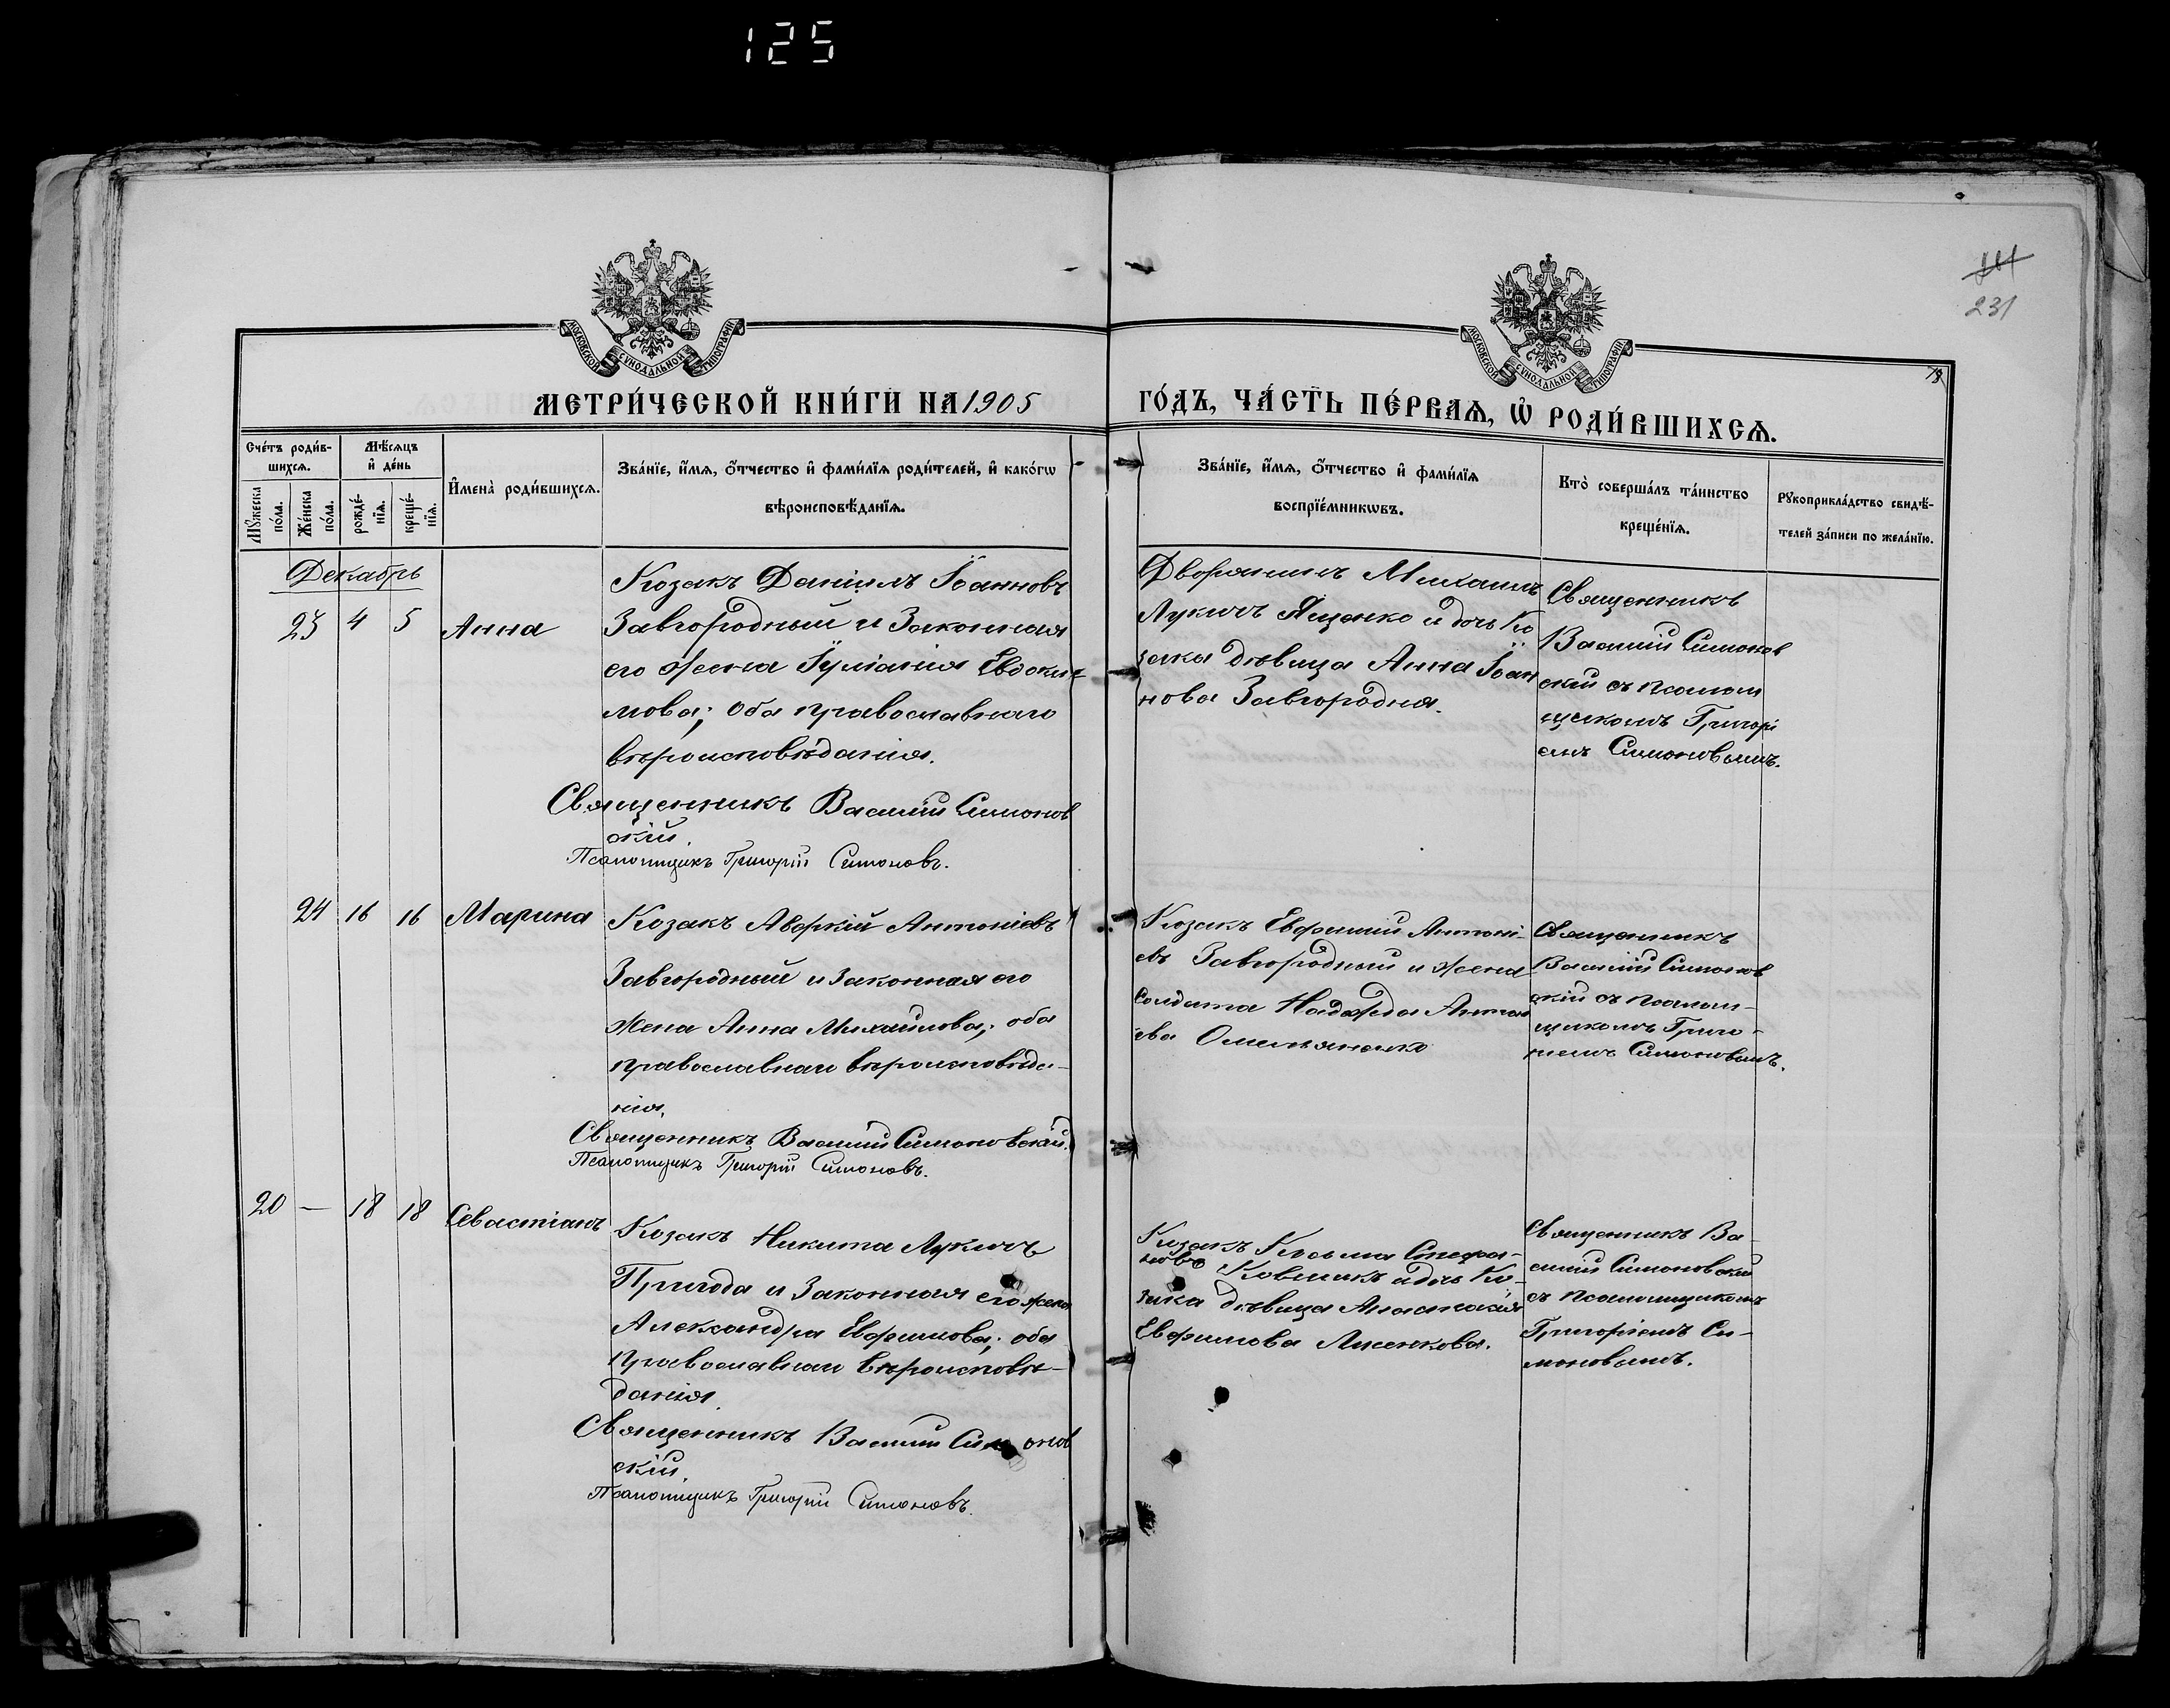 125
231
13
МОСКОВСКОЙ СУНОДАЛЬНОЙ ТИПОГРАФІИ
МОСКОВСКОЙ СУНОДАЛЬНОЙ ТИПОГРАФІИ
МЕТРИ́ЧЕСКОЙ КНИ́ГИ НА 1905
ГО́ДЪ, ЧА́СТЬ ПЕ́РВАѦ, Ѡ҆ РОДИ́ВШИХСѦ.
Сче́тъ роди́в-
шихсѧ.
Мꙋ́жеска
по́ла.
Же́нска
по́ла.
Мѣ́сѧцъ
и҆ де́нь
рожде́-
нїѧ.
креще́-
нїѧ.
И҆мена̀ роди́вшихсѧ.
Зва́нїе, и҆́мѧ, ѻ҆́тчество и҆ фами́лїѧ роди́телей, и҆ како́гѡ
вѣроисповѣ́данїѧ.
Зва́нїе, и҆́мѧ, ѻ҆́тчество и҆ фами́лїѧ
воспрїе́мникѡвъ.
Кто̀ соверша́лъ та́инство
креще́нїѧ.
Рꙋкоприкла́дство свидѣ́-
телей за́писи по жела́нїю.
Декабрь
23 4 5 Анна
Козакъ Даніилъ Іоанновъ
Завгородный и Законная
его жена Іуліанія Евдоки-
мова; оба православнаго
вѣроисповѣданія.
Священникъ Василій Симонов
скій.
Псаломщикъ Григорій Симоновъ.
Дворянинъ Михаилъ
Лукичъ Яценко и дочь Ко
зака дѣвица Анна Іоан
нова Завгородня.
Священникъ
Василій Симонов
скій съ псалом
щикомъ Григорі
емъ Симоновымъ.
24 16 16 Марина
Козакъ Аверкій Антоніевъ
Завгородный и Законная его
жена Анна Михайлова; оба
православнаго вѣроисповѣда-
нія.
Священникъ Василій Симоновскій.
Псаломщикъ Григорій Симоновъ.
Козакъ Евфимій Антоні-
евъ Завгородный и жена
Солдата Надежда Антон
іева Омельяненко
Священникъ
Василій Симонов
скій съ псалом-
щикомъ Григо-
ріемъ Симоновымъ.
20 — 18 18 Севастіанъ
Козакъ Никита Лукичъ
Пригода и Законная его жена
Александра Евфимова; оба
православнаго вѣроисповѣ-
данія.
Священникъ Василій Симонов
скій.
Псаломщикъ Григорій Симоновъ.
Козакъ Косьма Стефа-
новъ Ковшикъ и дочь Ко-
зака дѣвица Анастасія
Евфимова Лисенкова.
Священникъ Ва-
силій Симоновскій
съ псаломщикомъ
Григоріемъ Си-
моновымъ.